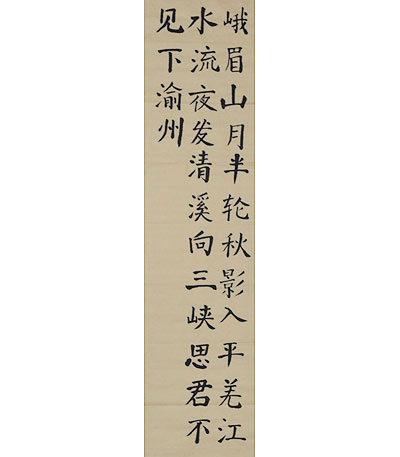 峨眉山月半轮秋影入平羌江
水流夜发清溪向三峡思君不
见下渝州